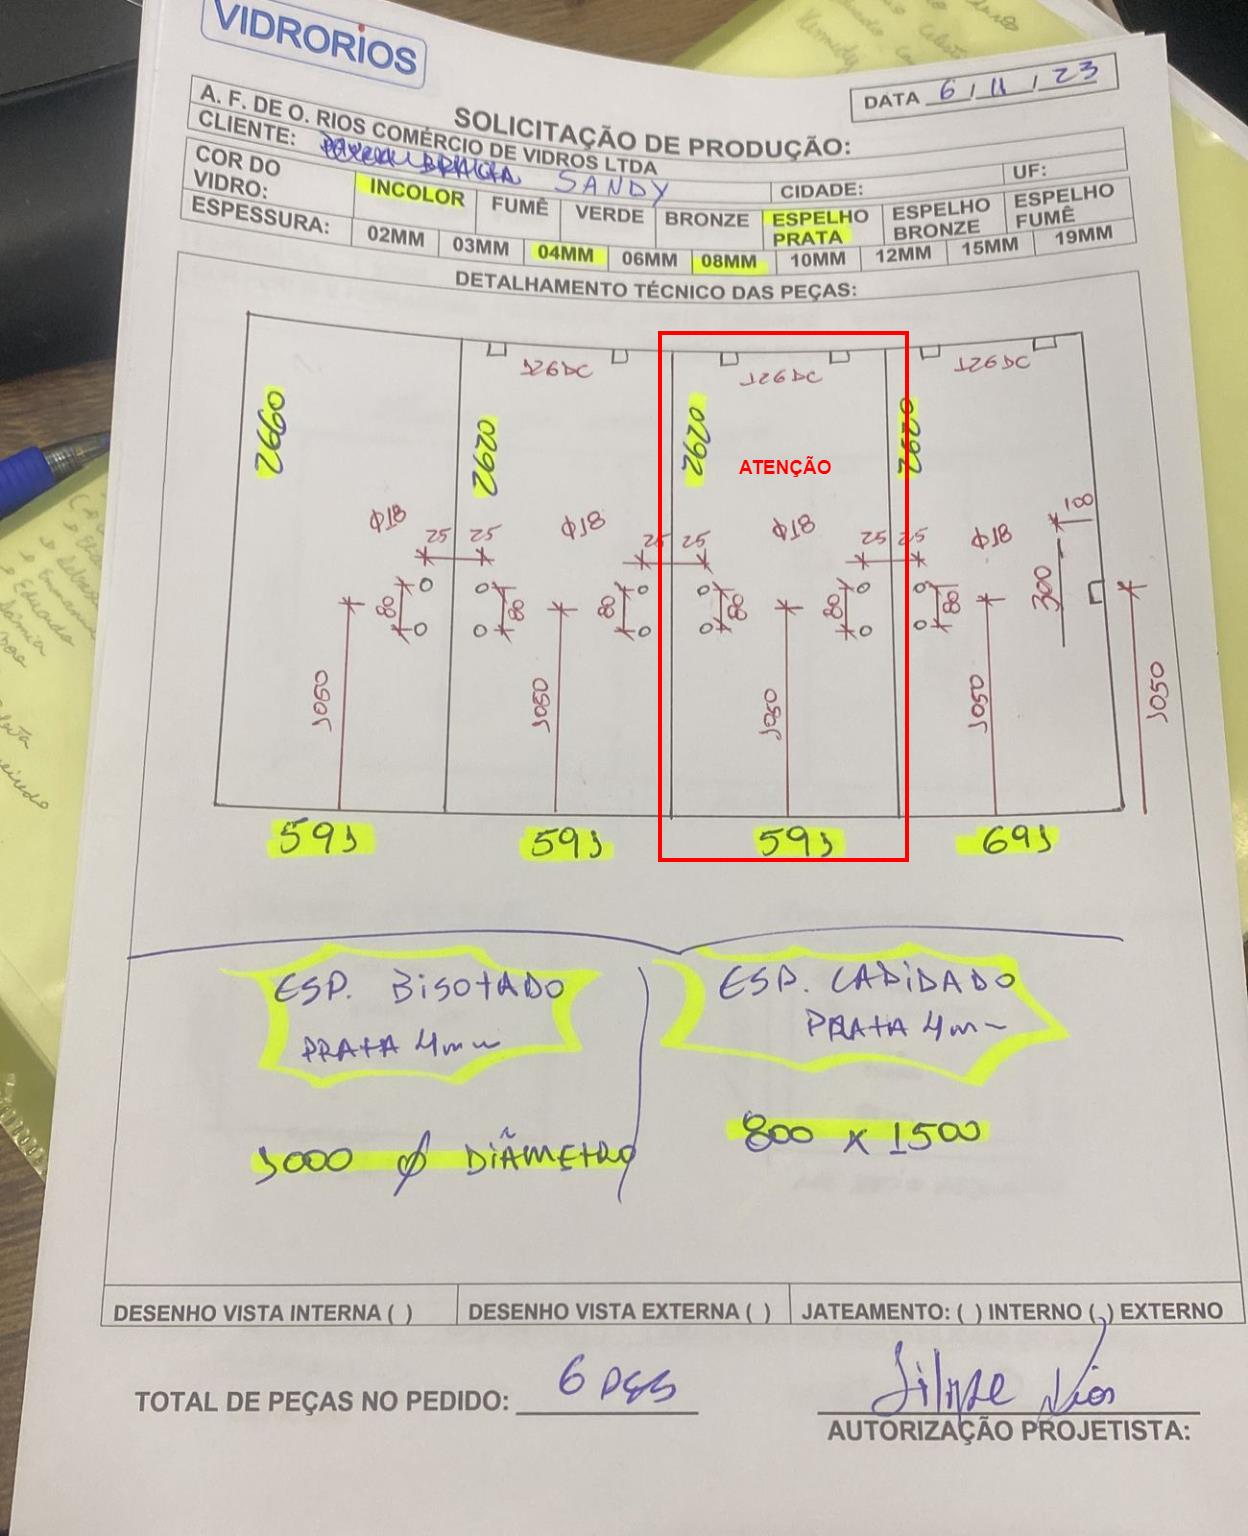 VIDRORIOS
DATA 6 / 11 / 23
SOLICITAÇÃO DE PRODUÇÃO:
A. F. DE O. RIOS COMÉRCIO DE VIDROS LTDA
CLIENTE: SANDY CIDADE: UF:
COR DO VIDRO: INCOLOR FUMÊ VERDE BRONZE ESPELHO PRATA ESPELHO BRONZE ESPELHO FUMÊ
ESPESSURA: 02MM 03MM 04MM 06MM 08MM 10MM 12MM 15MM 19MM
DETALHAMENTO TÉCNICO DAS PEÇAS:
126DC 126DC 126DC
2660 2620 2620 2620
ATENÇÃO
Φ18 25 25 Φ18 25 25 Φ18 25 25 Φ18 100
80 80 80 80 80 80 300
1050 1050 1050 1050 1050
591 591 591 691
ESP. BISOTADO
PRATA 4mm
ESP. LAPIDADO
PRATA 4mm
1000 Ø DIÂMETRO
800 X 1500
DESENHO VISTA INTERNA ( ) DESENHO VISTA EXTERNA ( ) JATEAMENTO: ( ) INTERNO ( ) EXTERNO
TOTAL DE PEÇAS NO PEDIDO: 6 PÇS
Filipe Rios
AUTORIZAÇÃO PROJETISTA: